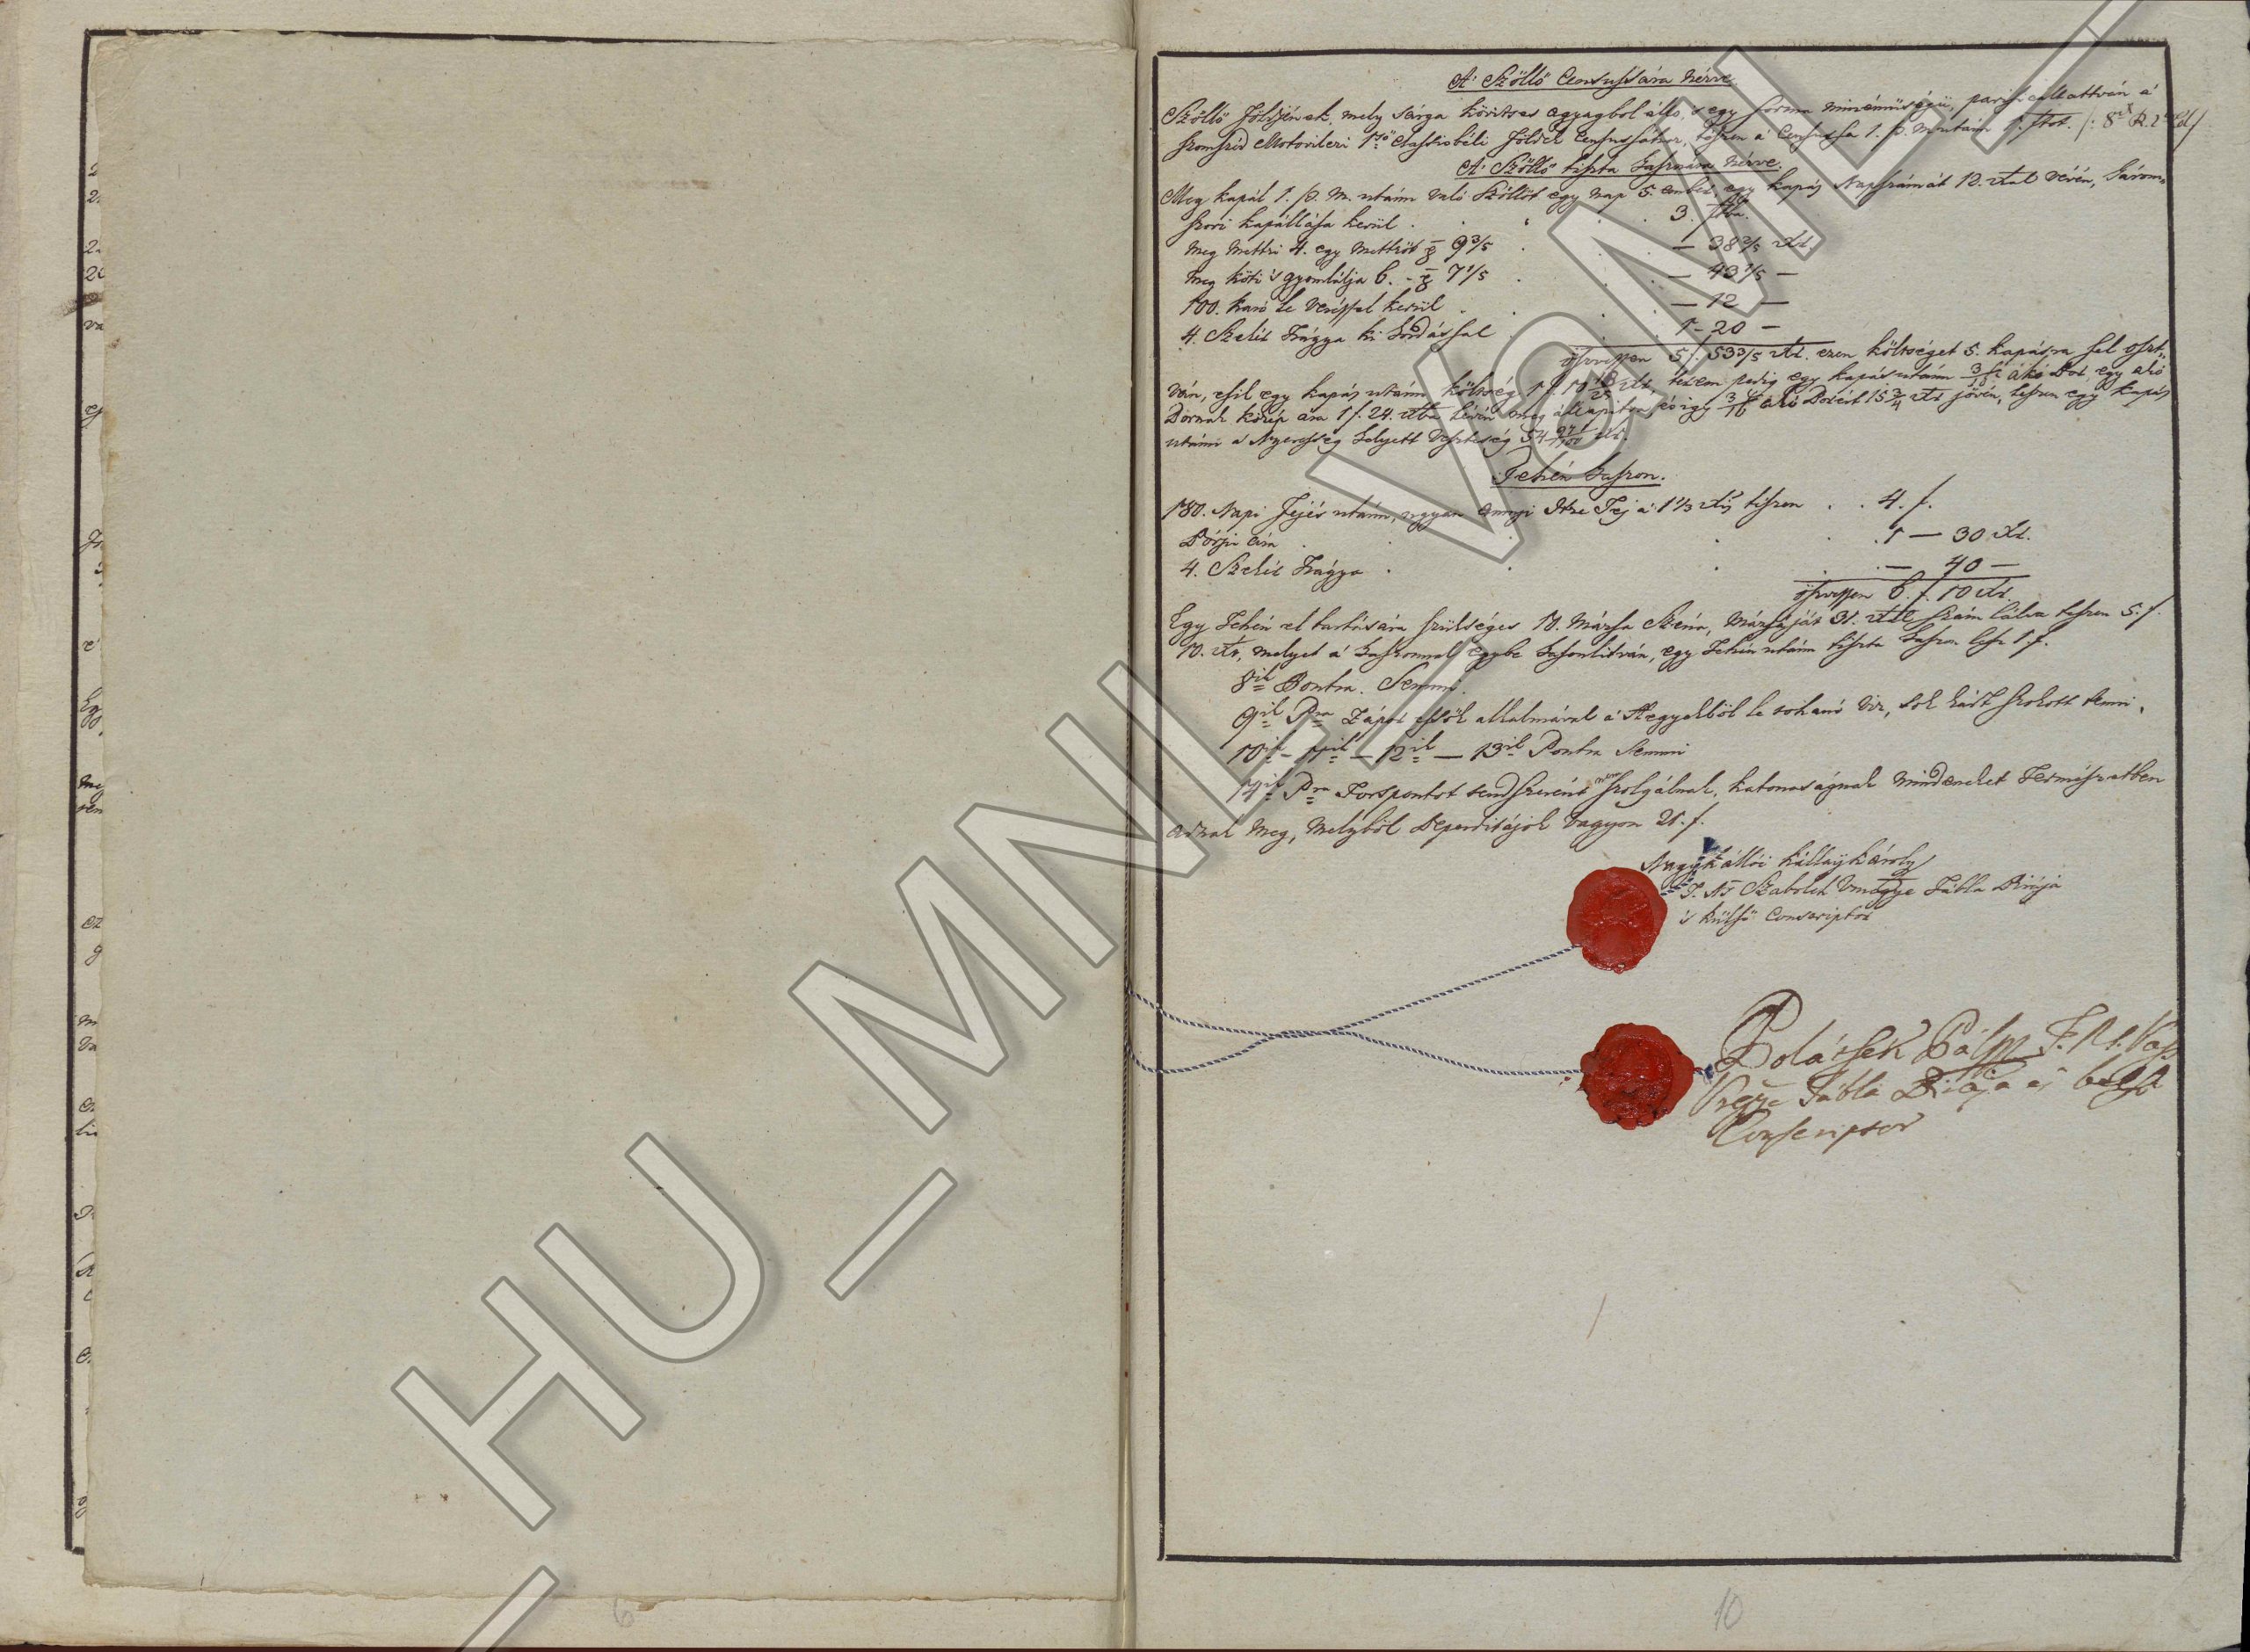 A' Szőllő Censussára nézve
Szőllő Földjének, mely sárga köves agyagbol álló, s egy forma minéműségü, parificaltattván á
szomszéd Motovileri 1ső Classisbéli Földek Censussához, tészen á Censussa 1. p. M. után 1. ftot.
A' Szőllő tiszta hasznára nézve.
Meg kapál 1. p. M. utánn való Szőllőt egy nap 5. ember, egy kapás Napszámát 12. xral vévén, három-
szori kapállása kerül . . . 3. ftba.
meg mettzi 4. egy mettzőt 9 3/5 . . — 38 2/5 xr.
meg köti 's gyomlálja 6. - 7 1/5 . . — 43 1/5 —
100. karó le veréssel kerül . . — 12 —
4. Szekér Trágya ki hordással . . 1 - 20 —
öszvessen 5 f. 53 3/5 xr. ezen költséget 5. kapásra fel oszt-
ván, esik egy kapás utánn költség 1 f. 10 18/25 xr. terem pedig egy kapás utánn 3/16 akó Bor egy akó
Bornak közép ára 1 f. 24. xrba lévén meg állapitva, és igy 3/16 akó Borért 15 3/4 xr jövén, leszen egy kapás
utánn a Nyereség helyett veszteség 54 97/100 xr.
Tehén haszon.
180. Napi Fejés utánn, ugyan annyi Itze Téj á 1 1/3 xrj tészen . . 4. f.
Borju ára . . . . 1 — 30 xr.
4. Szekér Trágya . . . — 40 —
öszvessen 6. f. 10 xr.
Egy Tehén el tartására szükséges 10. Mázsa Széna, Mázsáját 31. xral számlálva teszen 5. f.
10. xr, melyet á haszonnal egybe hasonlitván, egy Tehén utánn tiszta haszon lesz 1. f.
8ik Pontra. Semmi.
9ik Pra Zápor essők alkalmával á Hegyekből le rohanó viz, sok kárt szokott tenni.
10ik - 11ik — 12ik — 13ik Pontra Semmi
14ik Pra Forspontot rendszerént nem szolgálnak, katonaságnak mindeneket Termeszetben
adnak meg, melyből Deperditájok vagyon 21. f.
Nagykállói Kállay Károly
T. Ns Szabolch Vmegye Tábla Birája
's külső Conscriptor
Bolássek Pál mp T. N. Vas
Vmegye Tábla Birája és belső
Conscriptor
6
10
HU_MNL_VaML_